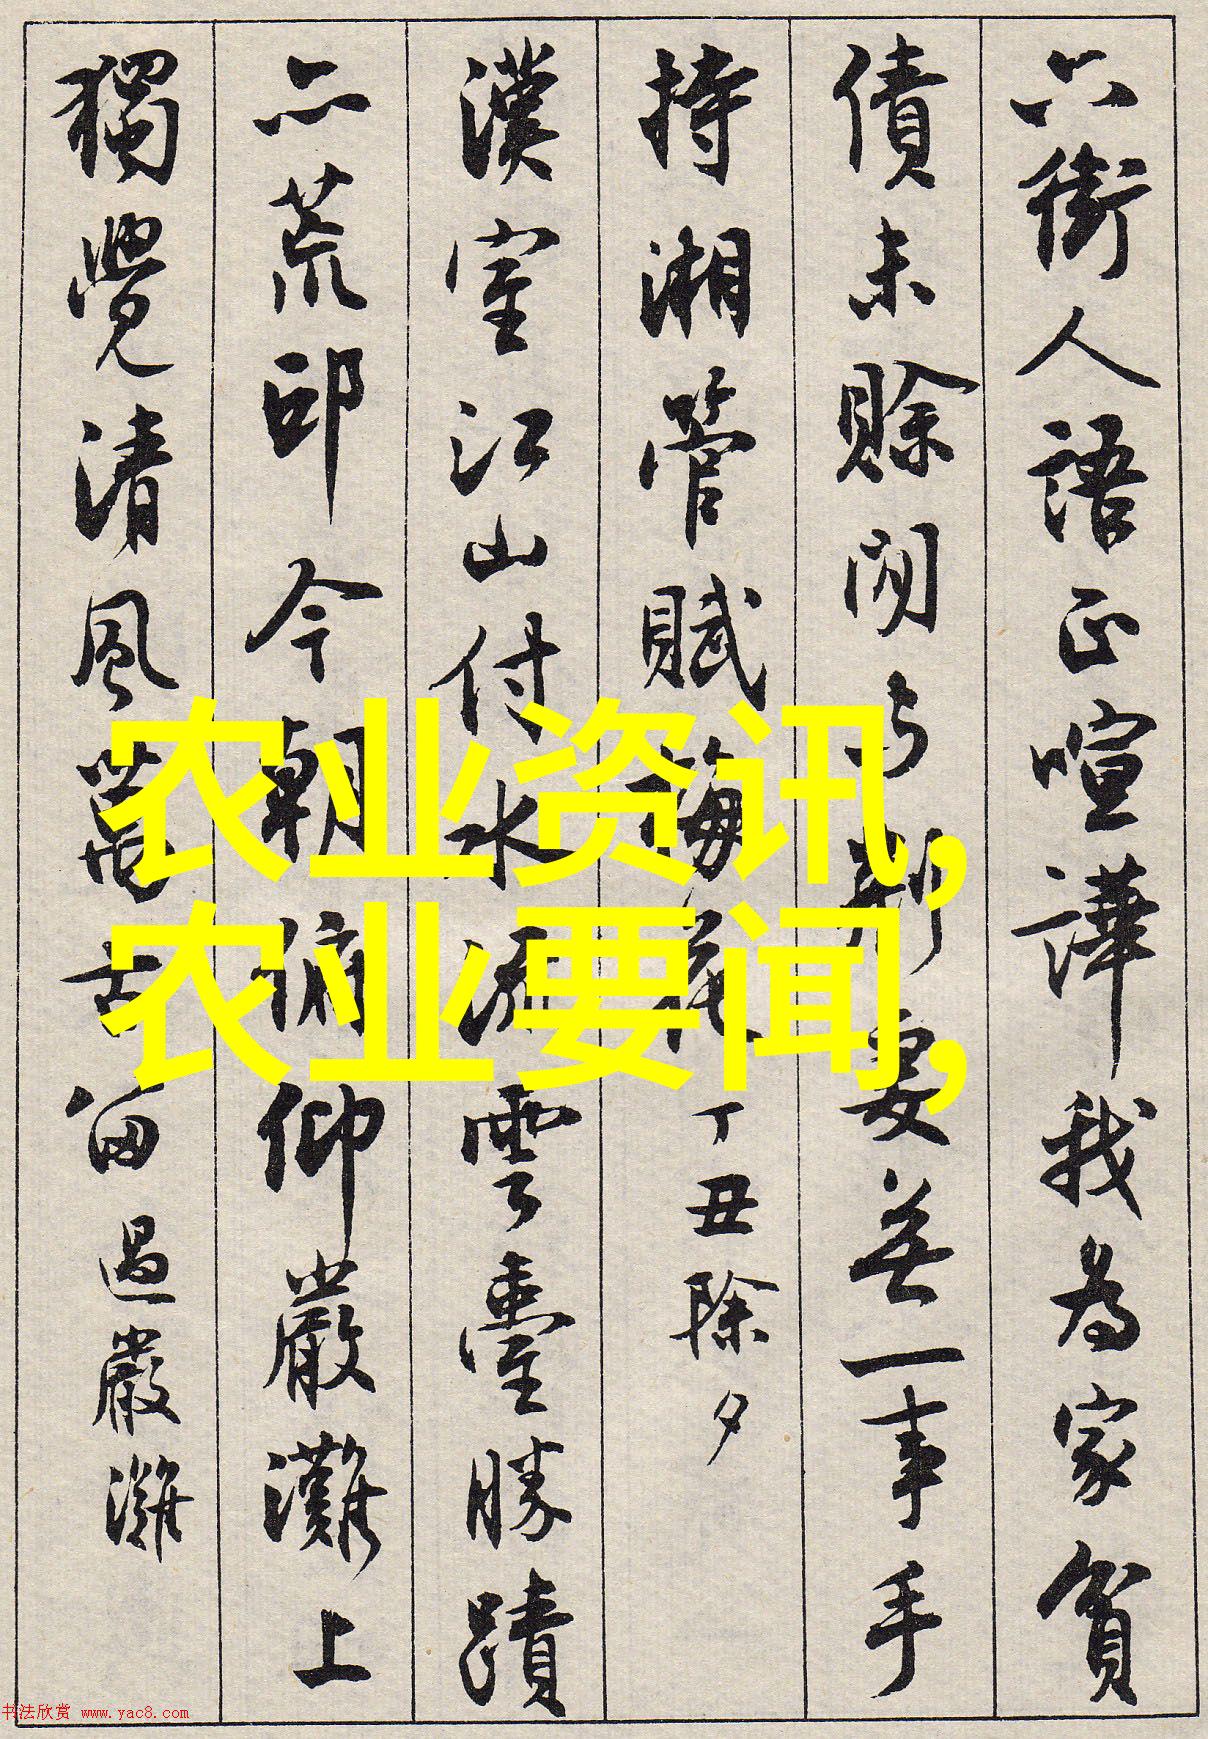 六街人語正喧譁我為家貧
債未賒閒与荊妻無一事手
持湘管賦梅花丁丑除夕
漢室江山付水流雲臺勝蹟
亦荒邱今朝俯仰嚴灘上
獨覺清風萬古留過嚴灘
农业资讯,
农业要闻,
书法欣赏 www.yac8.com